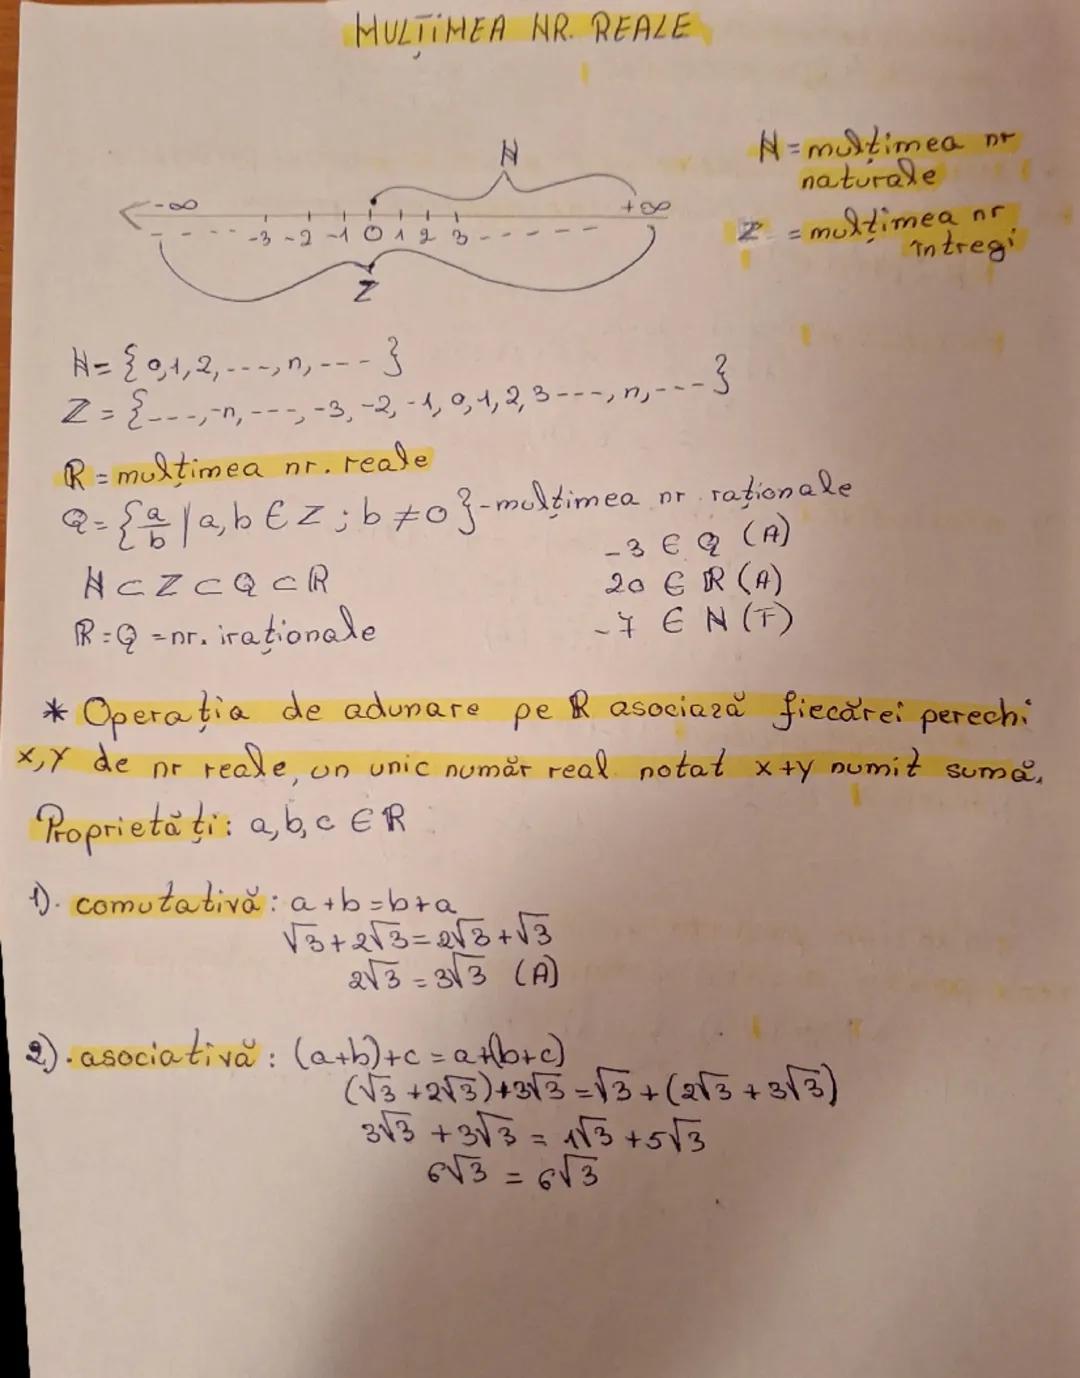 MULȚIMEA NR. REALE
N
-∞ +∞
- - - - -3 -2 -1 0 1 2 3 - - - - - -
Z
N = mulțimea nr
naturale
Z = mulțimea nr
întregi
N = {0,1,2,---,n,---}
Z = {---,-n,---,-3,-2,-1,0,1,2,3---,n,---}
R = mulțimea nr. reale
Q = {a/b | a,b ∈ Z ; b ≠ 0} - mulțimea nr. raționale
-3 ∈ Q (A)
N ⊂ Z ⊂ Q ⊂ R
20 ∈ R (A)
R = Q = nr. iraționale
-7 ∈ N (F)
* Operația de adunare pe R asociază fiecărei perechi
x,y de nr reale, un unic număr real notat x+y numit sumă.
Proprietăți: a,b,c ∈ R
1). comutativă: a+b=b+a
√3+2√3=2√3+√3
2√3=3√3 (A)
2). asociativă: (a+b)+c = a+(b+c)
(√3+2√3)+3√3=√3+(2√3+3√3)
3√3+3√3=1√3+5√3
6√3=6√3